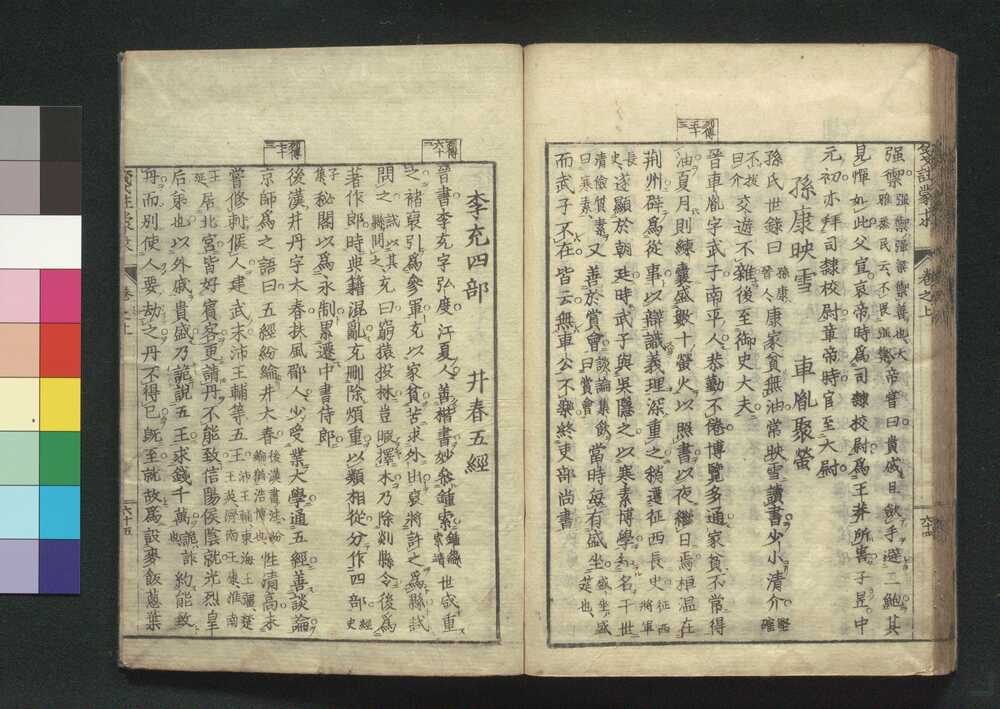 箋註蒙求 卷之上 六十四
强禦 强禦强梁禦善也大雅烝民云不畏强禦 帝嘗曰貴戚且歛手避二鮑其
見憚如此父宣哀帝時爲司隷校尉爲王莽所害子昱中
元初亦拜司隷校尉章帝時官至大尉
孫康映雪 車胤聚螢
孫氏世錄曰 康家貧無油常映雪讀書少小清介
不雜 交遊不雜後至御史大夫
晉車胤字武子南平人恭勤不倦博覽多通家貧不常得
油夏月則練囊盛數十螢火以照書以夜繼日焉桓温在
荆州辟爲從事以辯識義理深重之稍遷征西長史 征西將軍
長史 遂顯於朝廷時武子與吳隱之以寒素博學知名于世
清儉質素曰寒素 又善於賞會 談論集飮曰賞會 當時每有盛坐 盛坐盛筵也
而武子不在皆云無車公不樂終吏部尚書
李充四部 井春五經
晉書李充字弘度江夏人善楷書妙參鍾索 鍾繇索靖 世咸重
之褚裒引爲參軍充以家貧苦求外出裒將許之爲縣試
問之 充曰窮猿投林豈暇擇木乃除剡縣令後爲
著作郎時典籍混亂充刪除煩重以類相從分作四部 經史子集
秘閣以爲永制累遷中書侍郎
後漢井丹字大春扶風郿人少受業大學通五經善談論
京師爲之語曰五經紛綸井大春 性清高未
嘗修刺候人建武末沛王輔等五王 沛王輔東海王彊楚王英濟南王康淮南王延
居北宮皆好賓客更請丹不能致信陽侯陰就光烈皇
后弟也以外戚貴盛乃詭說五王求錢千萬 約能致
丹而別使人要劫之丹不得已旣至就故爲設麥飯葱葉
箋註蒙求 卷之上 六十五